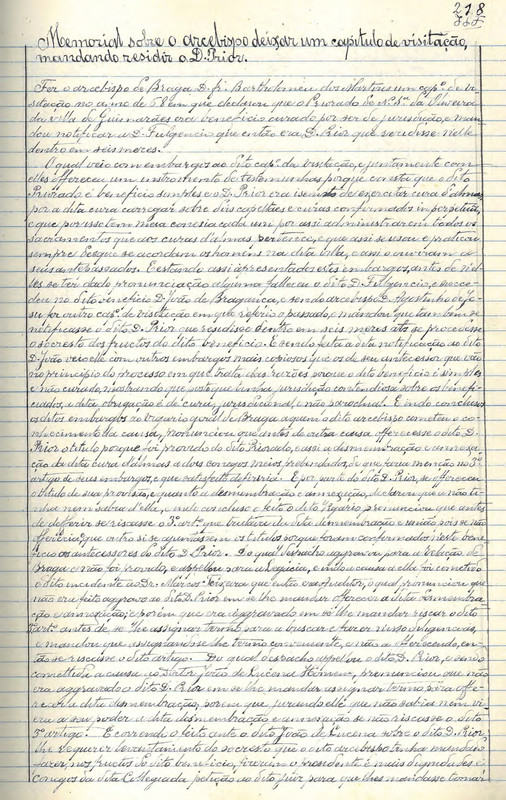 218
Memorial sobre o arcebispo deixar um capitulo de visitação,
mandando residir o D. Prior.
Fez o arcebispo de Braga D. fr. Bartholomeu dos Martires um cap.º de vi-
sitação no anno de 68 em que declarou que o Priorado de N.ª Sr.ª da Oliveira
da villa de Guimarães era beneficio curado por ser de jurisdição, e man-
dou notificar a D. Fulgencio que então era D. Prior que residisse nelle
dentro em seis mezes.
O qual veio com embargos ao dito cap.º da visitação, e juntamente com
elles offereceu um instrumento de testemunhas porque consta que o dito
Priorado é beneficio simples e o D. Prior era isento de exercitar cura d'almas
por a dita cura carregar sobre dois capellães e curas confirmados in perpetuum,
e que por isso tem meia conesia cada um por assi administrarem todos os
sacramentos que aos curas d'almas pertence, e que assi se usou e praticou
sempre desque se acordam os homens na dita villa, e assi o ouviram a
seus antepassados. E estando assi apresentados estes embargos, antes de nel-
les se ter dado pronunciação alguma falleceu o dito D. Fulgencio, e succe-
deu no dito beneficio D. João de Bragança, e sendo arcebispo D. Agostinho dei-
xou outro cap.º de visitação em que referio o passado, e mandou que tambem se
notificasse o dito D. Prior que residisse dentro em seis mezes até se proceder
o secresto dos fructos do dito beneficio. E sendo feita a dita notificação ao dito
D. João veio elle com outros embargos mais copiosos que os de seu antecessor que vão
no principio do processo em que trata das razões porque o dito beneficio é simples
e não curado, mostrando que posto que tenha jurisdição contenciosa sobre os benefi-
ciados, e dita obrigação de cura, jurisdicional, e não parochial. E indo conclusos
os ditos embargos ao vigario geral de Braga a quem o dito arcebispo cometeu o co-
nhecimento da causa, pronunciou que antes de outra causa offerecesse o dito D.
Prior o titulo porque foi provado do dito Priorado, e assi a desmembração e annexa-
ção da dita cura d'almas a dois conegos meios prebendados, de que faz menção no 3º
artigo de seus embargos, e que satisfeito deferiria. E por parte do dito D. Prior, se offereceu
o titulo de sua provisão, e quanto a desmembração e annexação, declarou que a não ti-
nha nem sabia d'ella, e indo concluso o feito o dito Vigario pronunciou que antes
de deferir se riscasse o 3º art.º que tratava da dita demembração e união pois se não
offerecia, que outro si se ajuntassem os titulos porque foram confirmados neste bene-
ficio os antecessores do dito D. Prior. Do qual despacho aggravou para a Relação de
Braga e não foi provido, e appellou para a Legacia, e vindo a causa a ella foi cometido
o dito incidente ao Dr. Marcos Teixeira que então era Auditor, o qual pronunciou que
não era feito aggravo ao dito D. Prior em se lhe mandar offerecer a dita desmembra-
ção e annexação, e porem que era aggravado em se lhe mandar riscar o dito
3º art.º antes de se lhe assignar termo para a buscar e fazer nisso diligencias,
e mandou que assignando-se-lhe termo conveniente, e não a offerecendo, en-
tão se riscasse o dito artigo. Do qual despacho appellou o dito D. Prior, e sendo
comettida a causa ao Doutor João de Lucena Homem, pronunciou que não
era aggravado o dito D. Prior em se lhe mandar assignar termo para offe-
recer a dita desmembração, porem que jurando elle que não sabia nem vi-
era a seu poder a dita desmembração e annexação se não riscasse o dito
3º artigo. E correndo o feito ante o dito João de Lucena sobre o dito D. Prior
lhe requerer levantamento do socresto que o dito arcebispo tinha mandado
fazer, nos fructos do dito beneficio, fizeram o presidente e mais dignidades e
conegos da dita Collegiada petição ao dito juiz para que lhes mandasse tomar